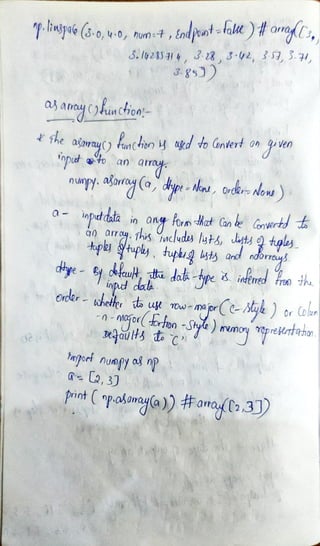 np.linspace(3.0, 4.0, num=7, Endpoint=False) # array([3.,
3.14285714, 3.28, 3.42, 3.57, 3.71,
3.85])
asarray() function:-
* The asarray() function is used to Convert an given
input to an array.
numpy.asarray(a, dtype=None, order=None)
a - input data in any form that can be converted to
an array. This includes lists, lists of tuples,
tuples of tuples, tuples of lists and ndarrays.
dtype - By default, the data-type is inferred from the
input data
order - whether to use row-major (C-style) or Colum
-n-major (Fortran-style) memory representation
Defaults to 'C'
import numpy as np
a = [2,3]
print(np.asarray(a)) # array([2,3])